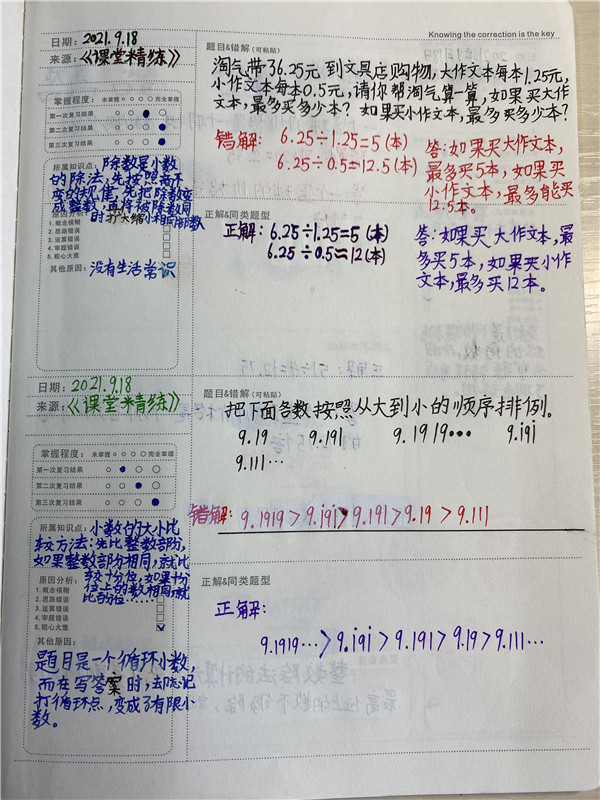 Knowing the correction is the key
日期: 2021.9.18
来源: 《课堂精练》
掌握程度: 未掌握 完全掌握
第一次复习结果
第二次复习结果
第三次复习结果
所属知识点: 除数是小数
的除法,先按照商不
变的规律,先把除数变
成整数,再将被除数同
时扩大缩小相同部数
原因分析:
1.概念模糊
2.思路错误
3.运算错误
4.审题错误
5.粗心大意
其他原因: 没有生活常识
题目&错解(可粘贴)
淘气带36.25元到文具店购物,大作文本每本1.25元,
小作文本每本0.5元,请你帮淘气算一算,如果买大作
文本,最多买多少本?如果买小作文本,最多买多少本?
错解: 6.25÷1.25=5(本)
6.25÷0.5=12.5(本)
答:如果买大作文本,
最多买5本,如果买
小作文本,最多能买
12.5本。
正解&同类题型
正解: 6.25÷1.25=5(本)
6.25÷0.5≈12(本)
答:如果买大作文本,最
多买5本,如果买小作
文本,最多买12本。
日期: 2021.9.18
来源: 《课堂精练》
掌握程度: 未掌握 完全掌握
第一次复习结果
第二次复习结果
第三次复习结果
所属知识点: 小数的大小比
较方法:先比整数部分,
如果整数部分相同,就比
较十分位,如果十分
位上的数相同,就
比百分位……
原因分析:
1.概念模糊
2.思路错误
3.运算错误
4.审题错误
5.粗心大意
其他原因:
题目是一个循环小数,
而在写答案时,去忘记
打循环点,变成了有限小
数。
题目&错解(可粘贴)
把下面各数按照从大到小的顺序排例。
9.19 9.191 9.1919••• 9.i9i
9.111…
错解: 9.1919>9.i9i>9.191>9.19>9.111
正解&同类题型
正解:
9.1919…>9.i9i>9.191>9.19>9.111…